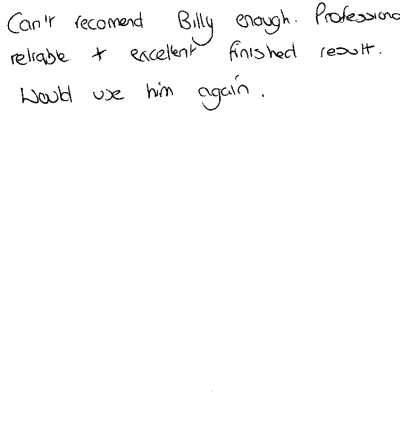 Can't recomend Billy enough. Professiona
reliable + excellent finished result.
Would use him again.